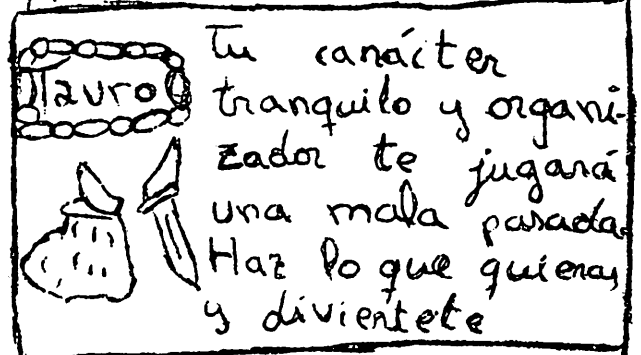 Tauro
Tu carácter
tranquilo y organi-
zador te jugará
una mala pasada.
Haz lo que quieras
y diviertete